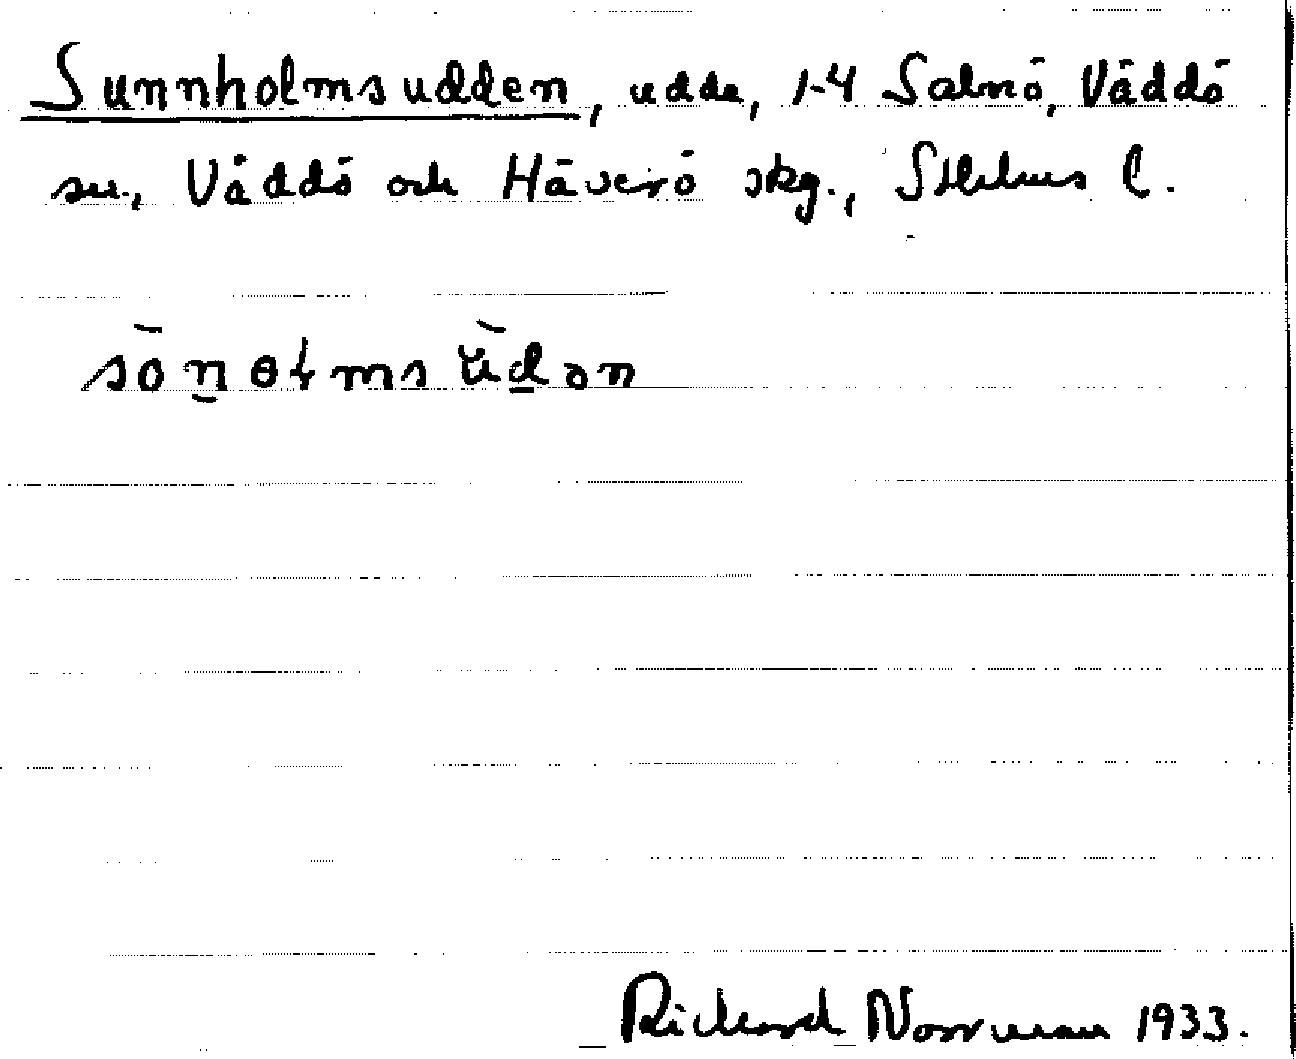 Sunnholmsudden, udde, 1-4 Salnö, Väddö
sn., Väddö och Häverö skg., Sthlms l.
sònoɫmsùdən
Rickard Norrman 1933.